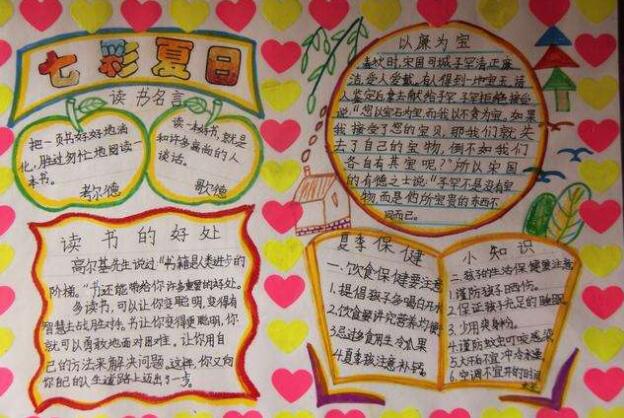 七彩夏日
读书名言
把一页书好好地消
化,胜过匆忙地阅读一
本书。
读一本好书,就是
和许多高尚的人
谈话。
歌德
以廉为宝
春秋时,宋国司城子罕清正廉
洁,受人爱戴。有人得到一块宝玉,请
人鉴定后拿去献给子罕,子罕拒绝接受,
说:"您以宝石为宝,而我以不贪为宝。如果
我接受了您的宝玉,那我们就失
去了自己的宝物,倒不如我们
各自有其宝呢?"所以宋国
的有德之士说:"子罕不是没有宝
物,而是他所宝贵的东西不
同而已。
读书的好处
高尔基先生说过:"书籍是人类进步的
阶梯。"书还能带给你许多重要的好处。
多读书,可以让你变聪明,变得有
智慧去战胜对手。书让你变得更聪明,你
就可以勇敢地面对困难。让你用自
己的方法来解决问题。这样,你又向
你自己的人生道路上迈出了一步。
夏季保健
一、饮食保健要注意
1、提倡孩子多喝白开水
2、饮食要讲究营养均衡
3、忌过多食用冷瓜果
4、夏季孩注意补钙。
小知识
二、孩子的生活保健要注意
1、谨防孩子晒伤。
2、保证孩子充足的睡眠
3、少用爽身粉。
4、谨防蚊虫叮咬感染
5、大汗后不宜冲冷水澡
6、空调不宜开的时间
太长